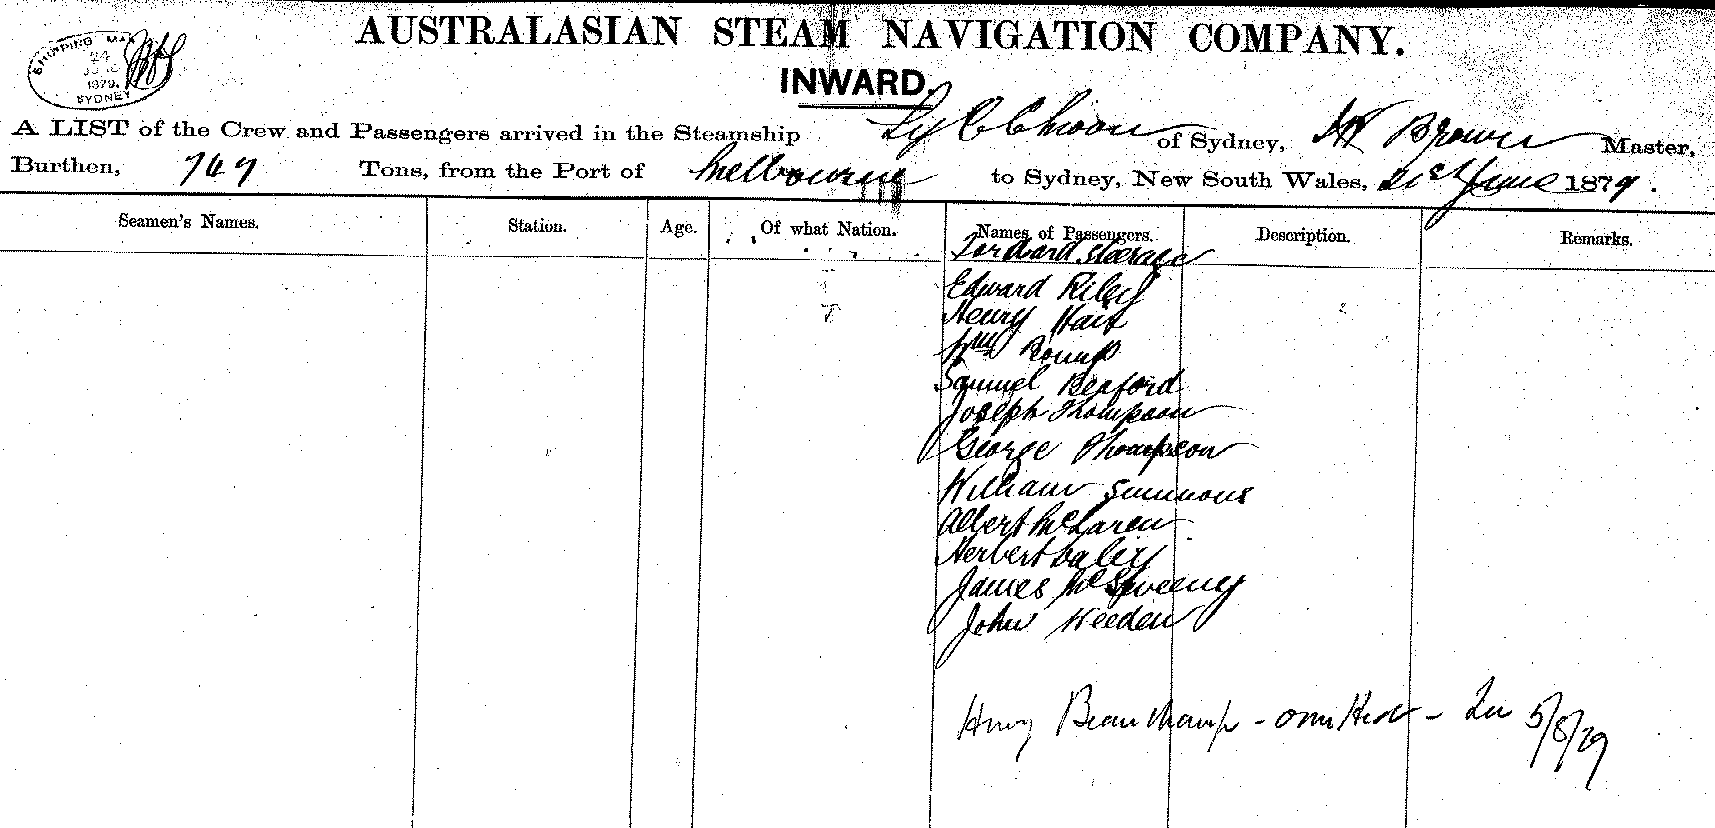 AUSTRALASIAN STEAM NAVIGATION COMPANY.
INWARD.
SHIPPING MA
24
1879.
SYDNEY
A LIST of the Crew and Passengers arrived in the Steamship Ly CC Choon of Sydney, Brown Master,
Burthen, 747 Tons, from the Port of Melbourne to Sydney, New South Wales, 21st June 1879.
Seamen's Names. Station. Age. Of what Nation. Names of Passengers. Description. Remarks.
Forward Steerage
Edward Riley
Henry Hart
Wm
Samuel Bexford
Joseph Thompson
George Thompson
William Simmons
Albert McLaren
Herbert Daley
James McSweeny
John Weeden
Henry Beauchamp - omitted - 5/8/79